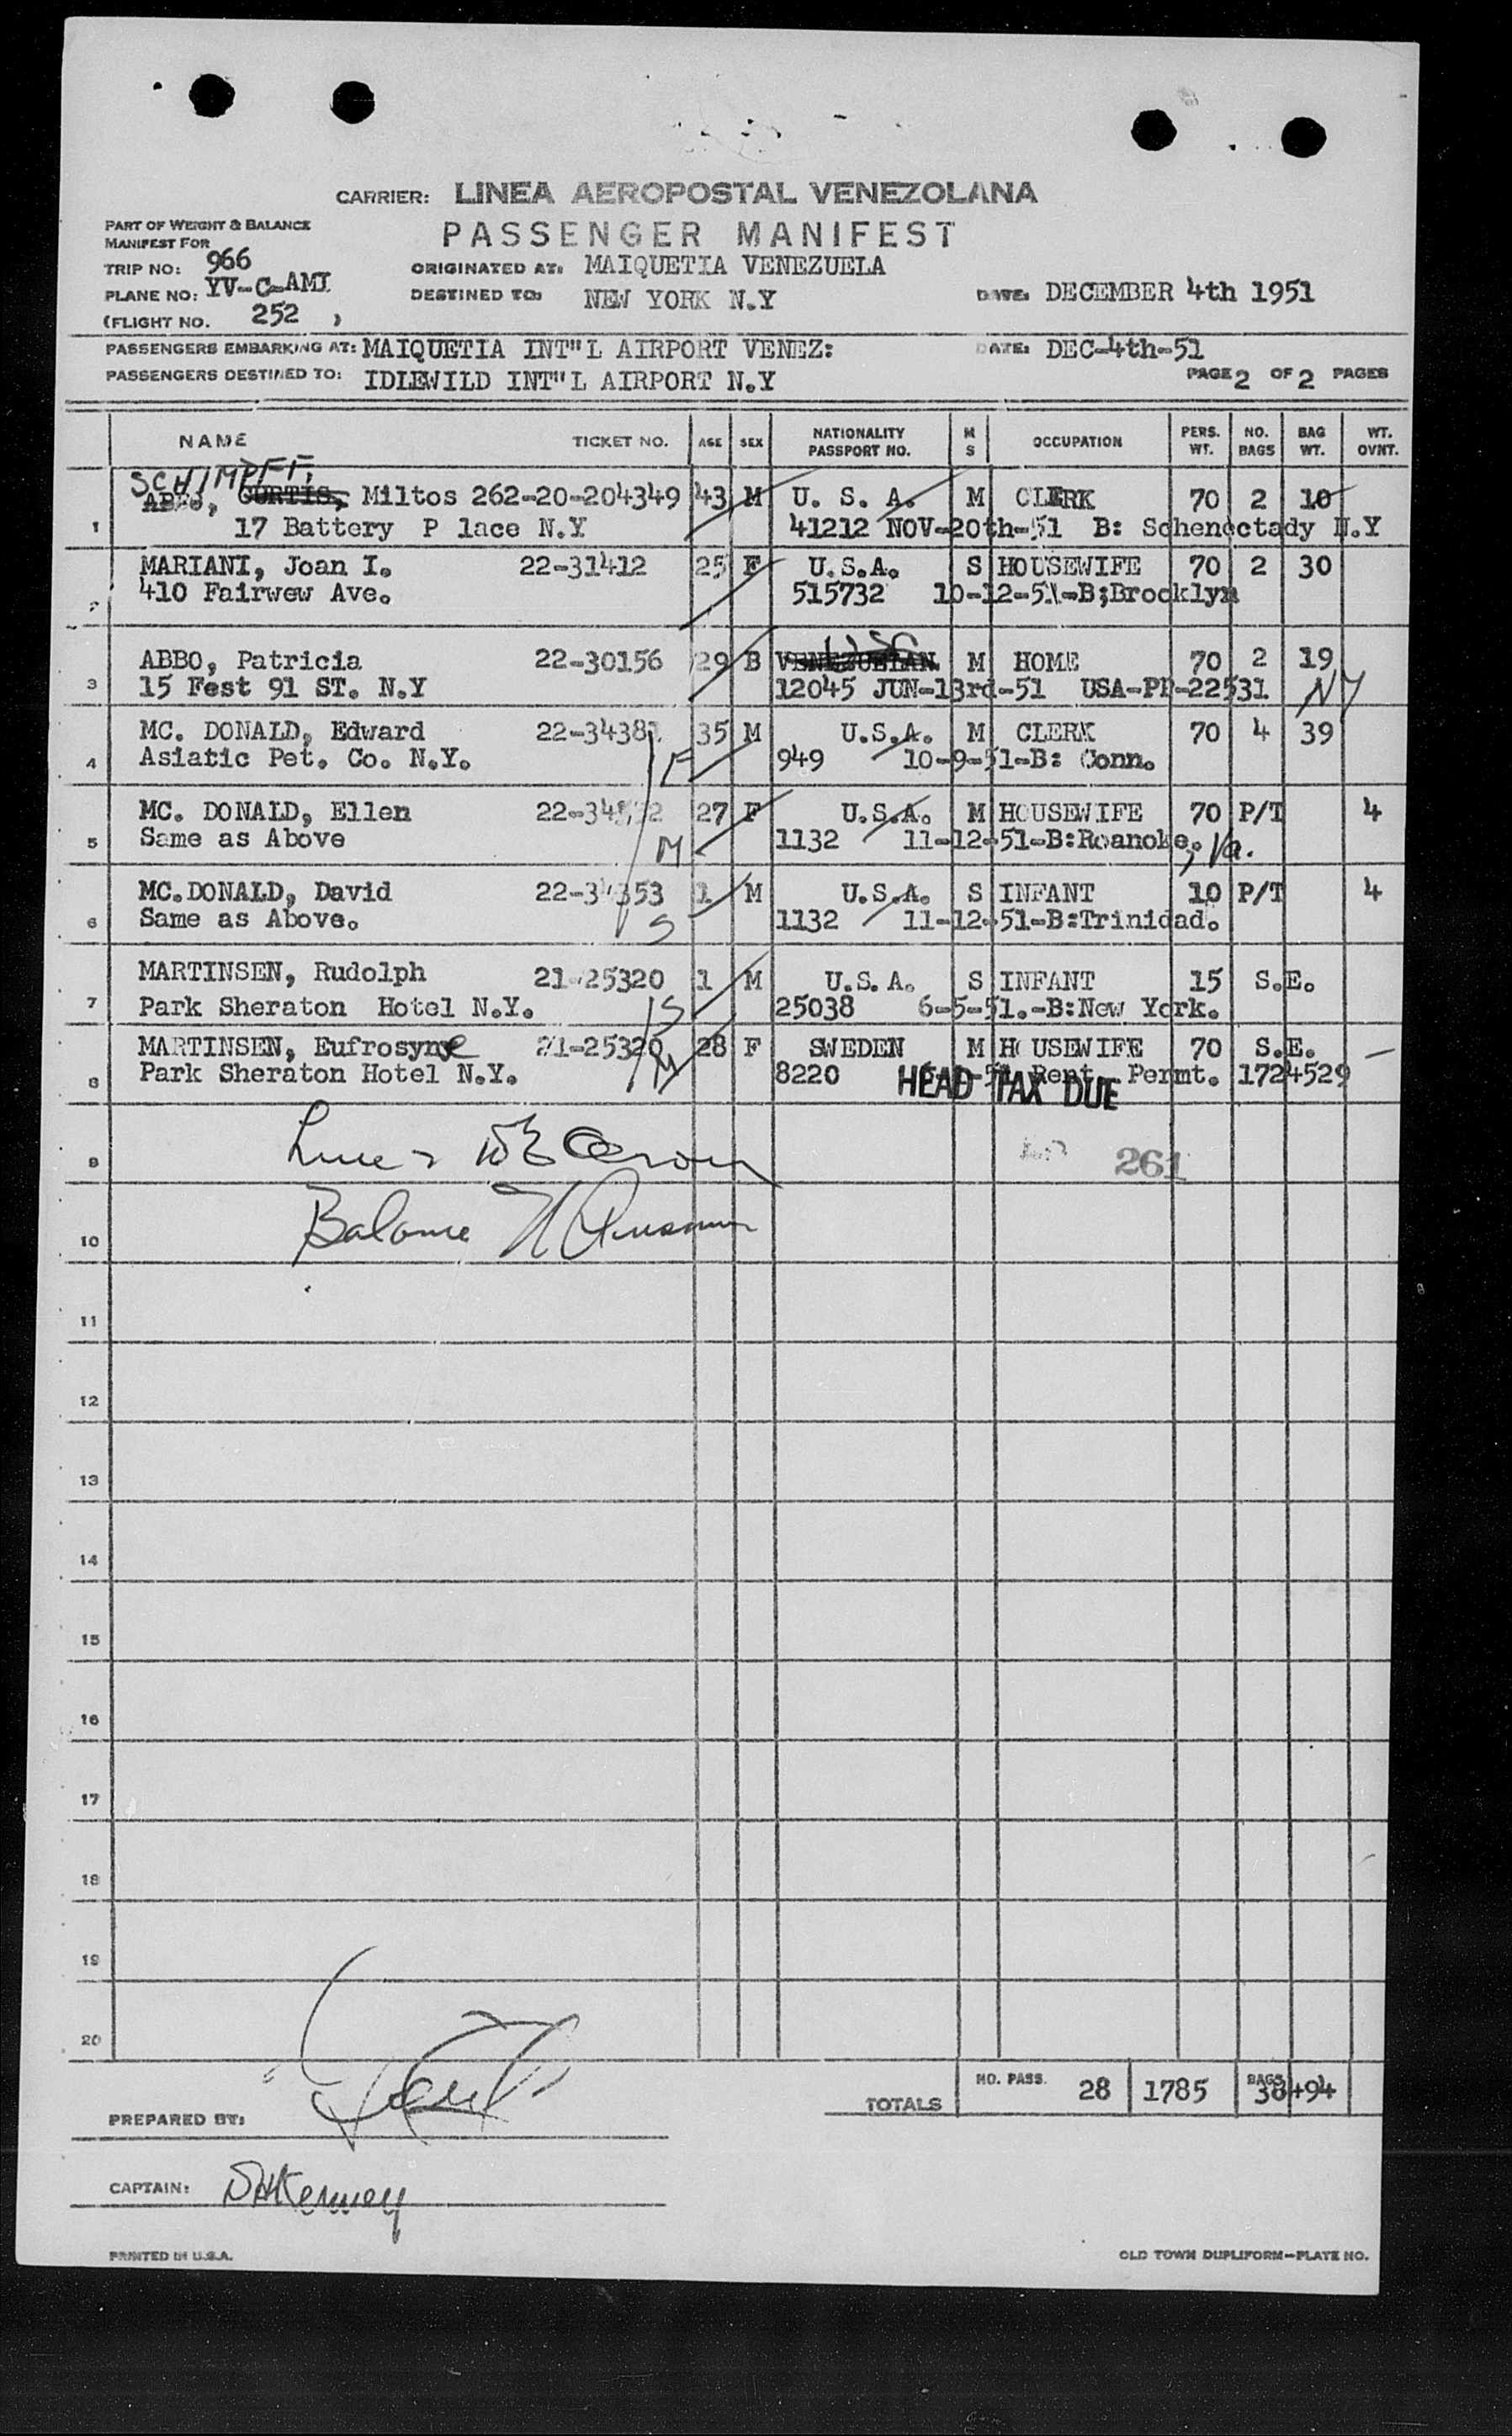 CARRIER: LINEA AEROPOSTAL VENEZOLANA
PART OF WEIGHT & BALANCE
MANIFEST FOR
PASSENGER MANIFEST
TRIP NO: 966
ORIGINATED AT: MAIQUETIA VENEZUELA
PLANE NO: YV-C-AMI
DESTINED TO: NEW YORK N.Y
DATE: DECEMBER 4th 1951
(FLIGHT NO. 252 )
PASSENGERS EMBARKING AT: MAIQUETIA INT"L AIRPORT VENEZ:
DATE: DEC-4th-51
PASSENGERS DESTINED TO: IDLEWILD INT"L AIRPORT N.Y
PAGE 2 OF 2 PAGES
NAME TICKET NO. AGE SEX NATIONALITY PASSPORT NO. M S OCCUPATION PERS. WT. NO. BAGS BAG WT. WT. OVNT.
SCHIMPFF,
ABBO, CURTIS, Miltos 262-20-204349 43 M U. S. A. M CLERK 70 2 10
1 17 Battery P lace N.Y 41212 NOV-20th-51 B: Schenectady N.Y
MARIANI, Joan I. 22-31412 25 F U.S.A. S HOUSEWIFE 70 2 30
2 410 Fairwew Ave. 515732 10-12-51-B;Brooklyn
US
ABBO, Patricia 22-30156 29 B VENEZUELAN M HOME 70 2 19
3 15 Fest 91 ST. N.Y 12045 JUN-13rd-51 USA-PP-22531 NY
MC. DONALD, Edward 22-3438 35 M U.S.A. M CLERK 70 4 39
4 Asiatic Pet. Co. N.Y. F 949 10-9-51-B: Conn.
MC. DONALD, Ellen 27 F U.S.A. M HOUSEWIFE 70 P/T 4
5 Same as Above M 1132 11-12-51-B:Roanoke, Va.
MC.DONALD, David 22-34353 1 M U.S.A. S INFANT 10 P/T 4
6 Same as Above. S 1132 11-12-51-B:Trinidad.
MARTINSEN, Rudolph 21-25320 1 M U.S.A. S INFANT 15 S.E.
7 Park Sheraton Hotel N.Y. S 25038 6-5-51.-B:New York.
MARTINSEN, Eufrosyne 21-25320 28 F SWEDEN M HOUSEWIFE 70 S.E.
8 Park Sheraton Hotel N.Y. M 8220 Permt. 1724529
HEAD TAX DUE
9 261
10 Balance
11
12
13
14
15
16
17
18
19
20
TOTALS NO. PASS. 28 1785 BAGS 38 494
PREPARED BY:
CAPTAIN:
PRINTED IN U.S.A.
OLD TOWN DUPLIFORM-PLATE NO.